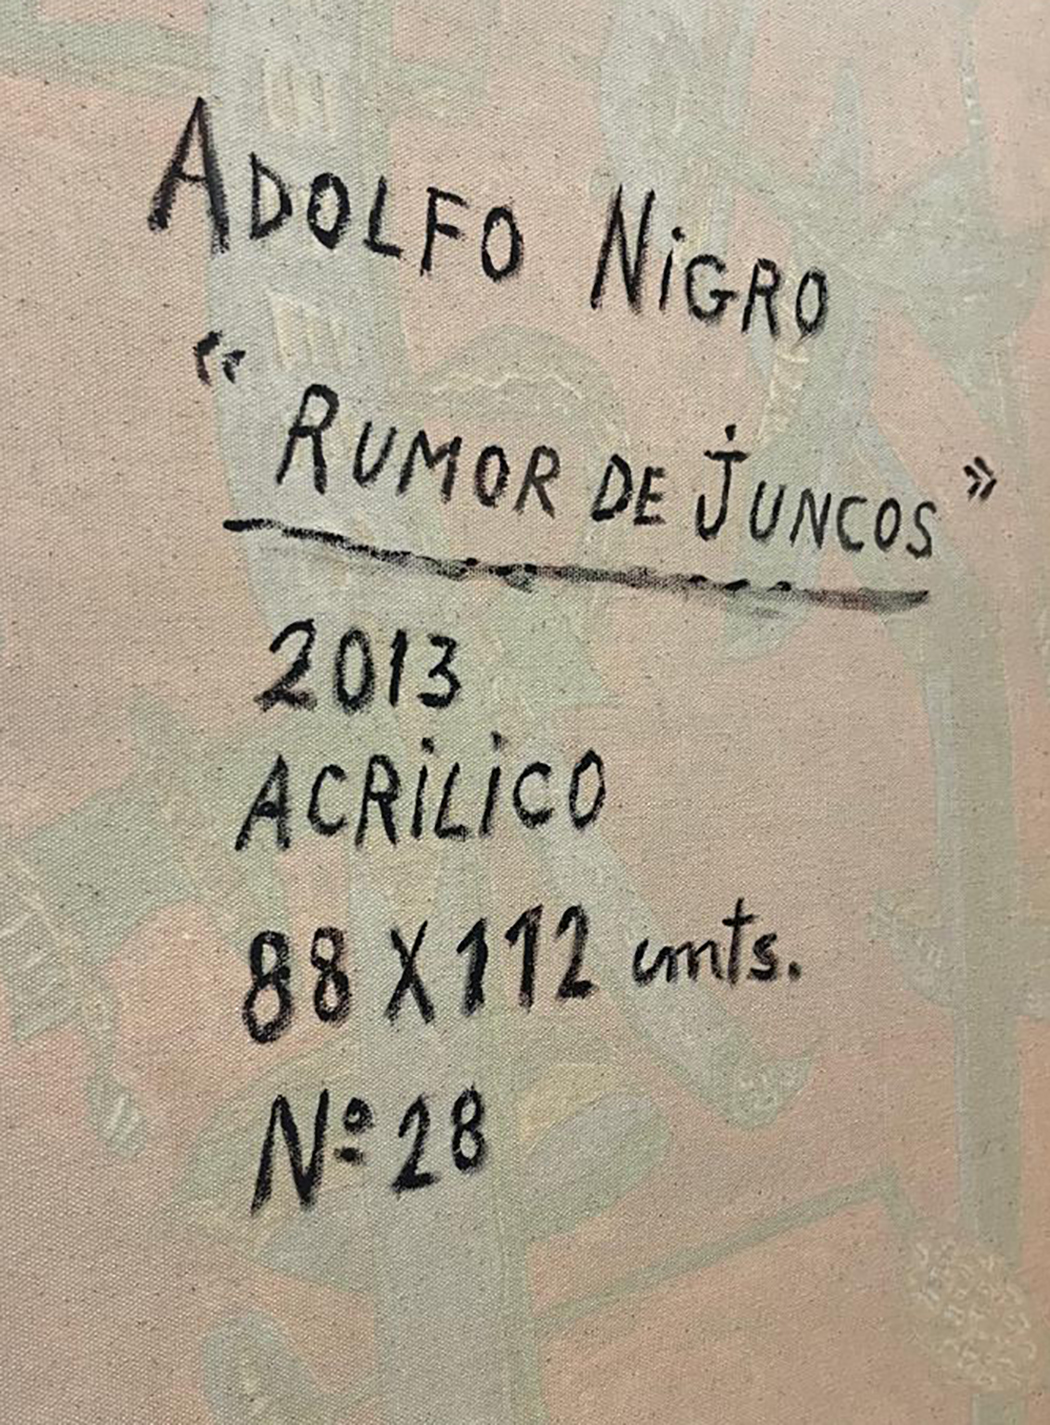 ADOLFO NiGRO
“ RUMOR DE JUNCOS ”
2013
ACRiLiCO
88 X 112 cmts.
Nº 28